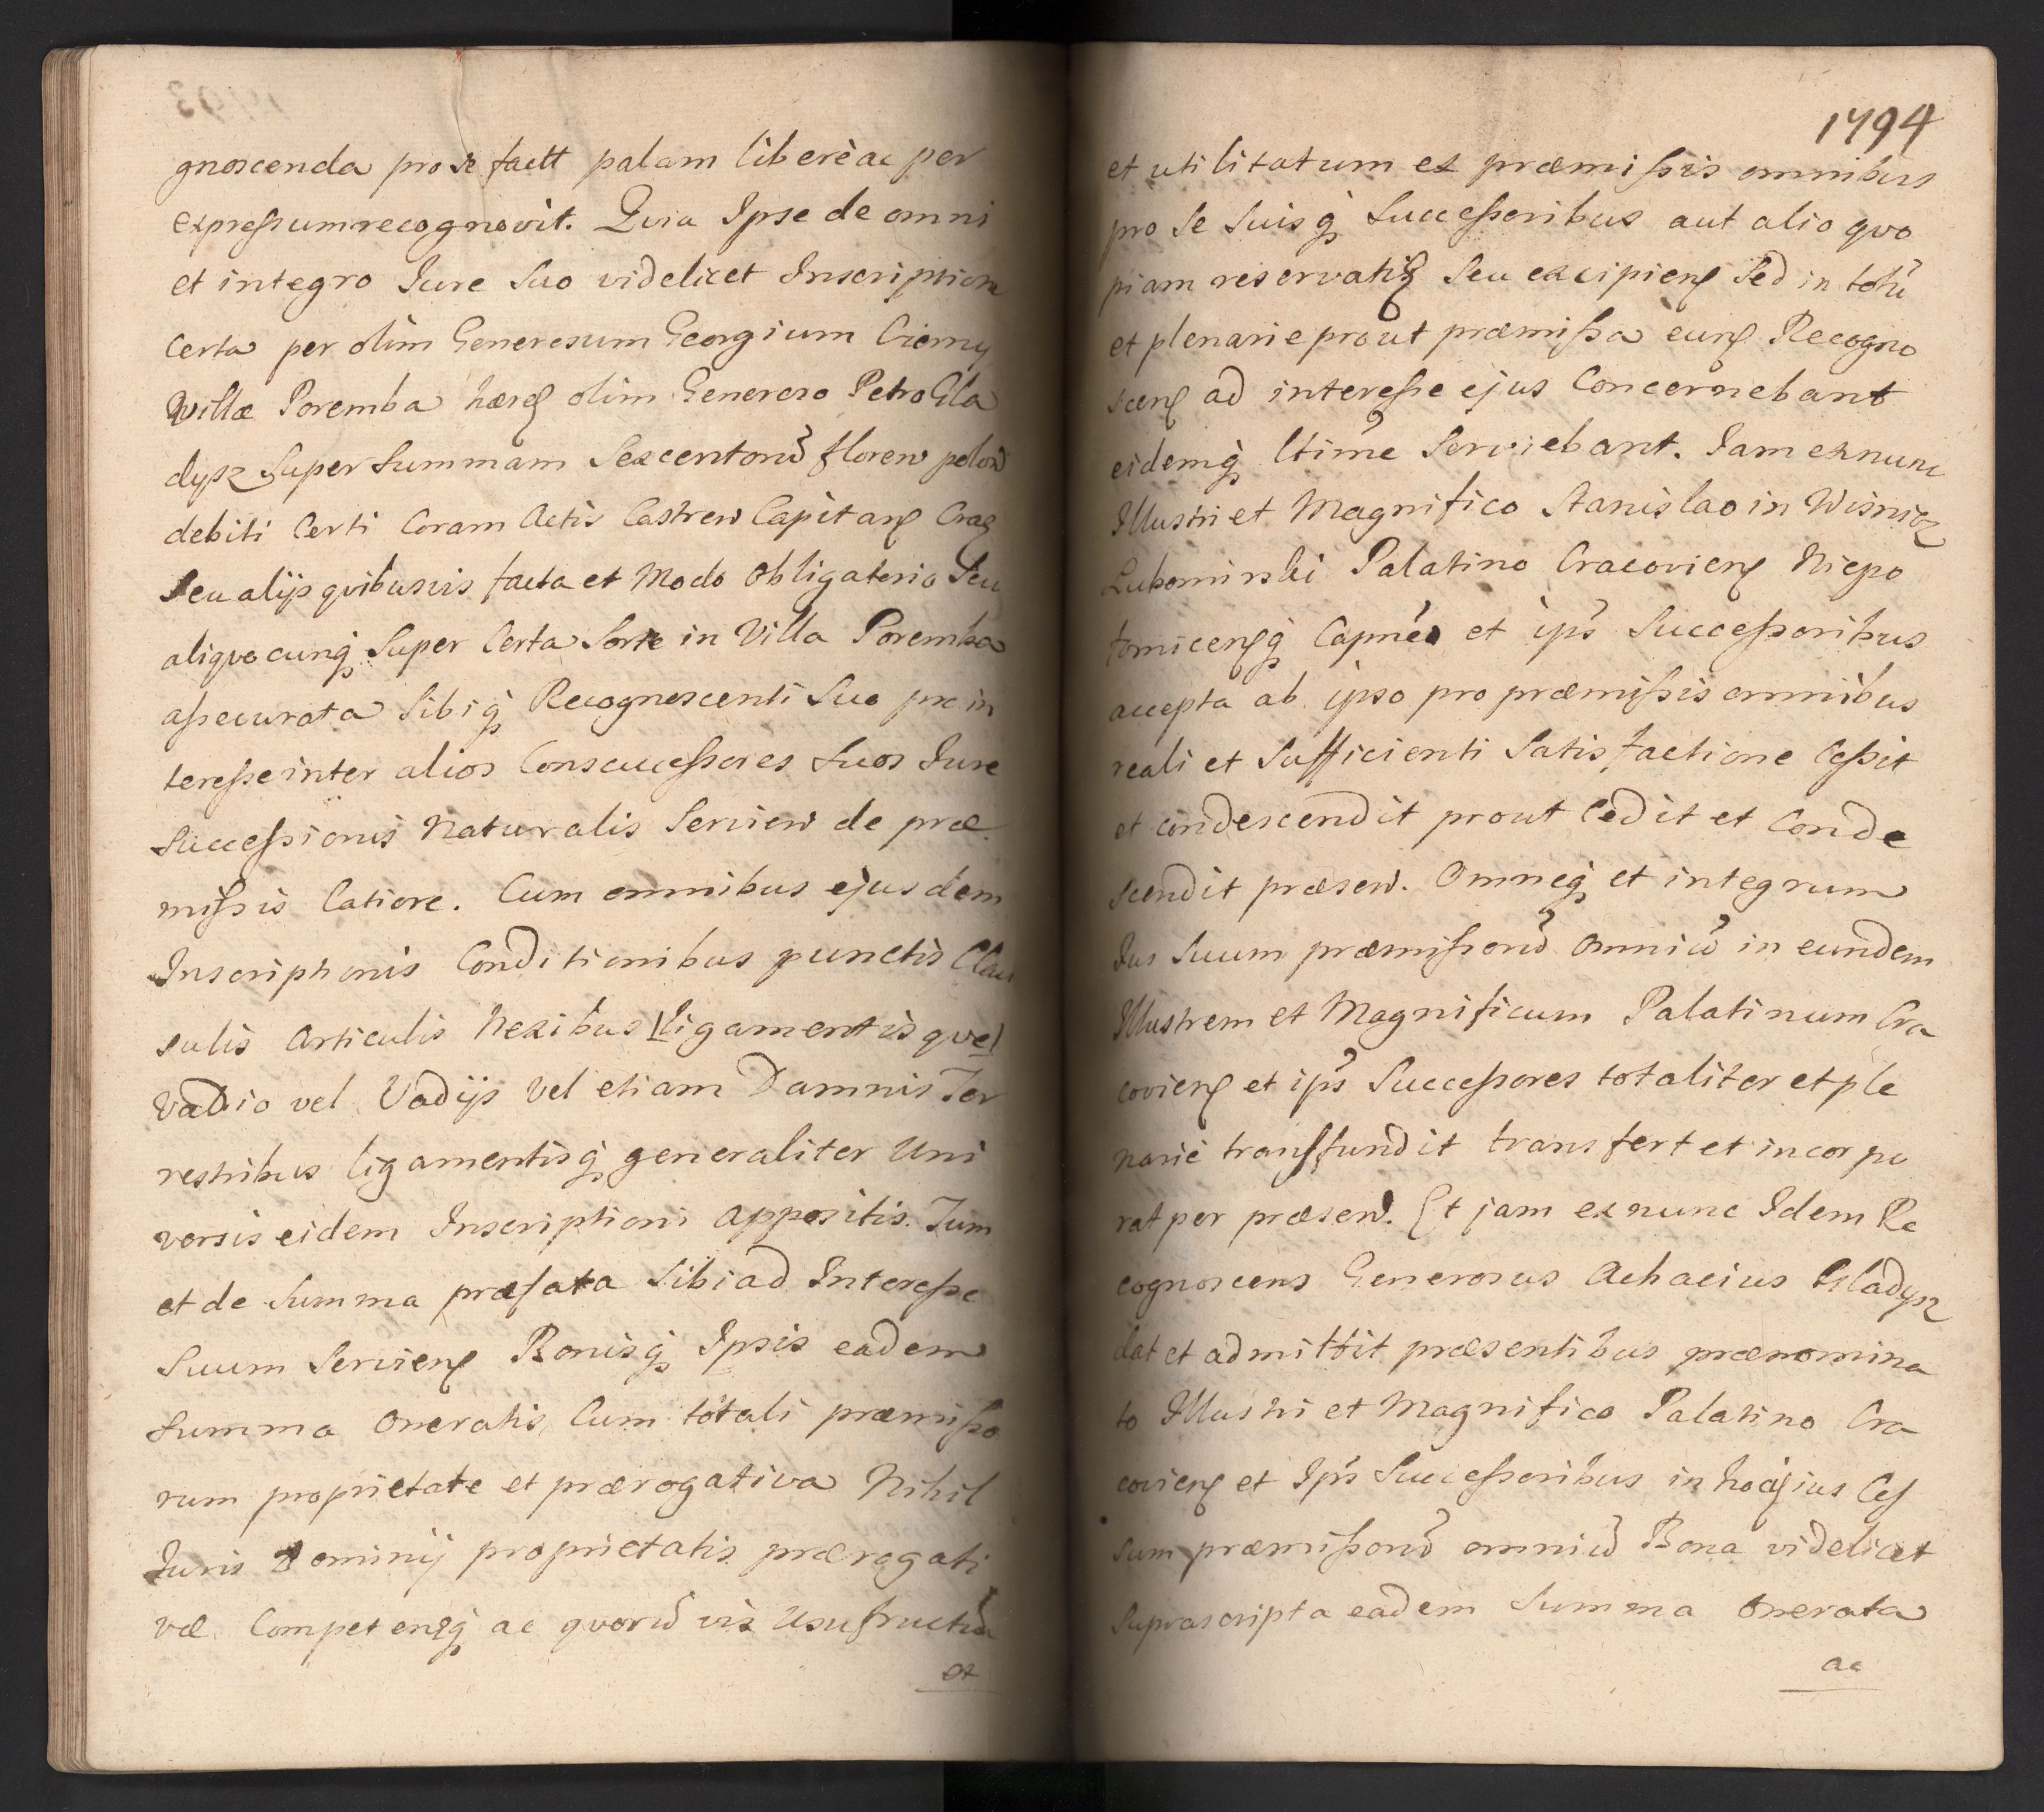 gnoscenda pro se factt palam liberè ac per
expressum recognovit. Quia Ipse de omni
et integro Iure Suo videlicet Inscriptione
Certa per olim Generosum Georgium Czerny
Villæ Poremba hæreς olim Generoso Petro Gla
dysz Super Summam Sexcentorũ floren polon
debiti Certi Coram Actis Castren Capitanς Craς
Seu alijs quibusvis facta et Modo Obligatorio Seu
aliquocunqꝫ Super Certa Sorte in Villa Poremba
assecurata Sibiqꝫ Recognoscenti Suo pro in
teresse inter alios Consuccessores Suos Iure
Successionis Naturalis Servien de præ
missis latiore. Cum omnibus ejusdem
Inscriptionis Conditionibus punctis Clau
sulis Articulis Nexibus Ligamentisque
Vadio vel Vadijs vel etiam Damnis Ter
restribus ligamentisqꝫ generaliter Uni
versis eidem Inscriptioni appositis. Tum
et de Summa præfata Sibi ad Interesse
Suum Servienς Bonisqꝫ Ipsis eadem
Summa Oneratis, Cum totali præmisso
rum proprietate et prærogativa Nihil
Iuris Dominij proprietatis prærogati
væ Competenςqꝫ ac quorũ vis Usufructuũ
et
1794
et utilitatum ex præmissis omnibus
pro Se Suisqꝫ Successoribus aut alio quo
piam reservatiς Seu excipienς Sed in totũ
et plenarie prout præmissa eunς Recogno
scenς ad interesse ejus Concernebant
eidemqꝫ ltime Serviebant. Iam exnunc
Illustri et Magnifico Stanislao in Wisnicz
Lubomirski Palatino Cracovienς Niepo
tomicenςqꝫ Capneo et ips Successoribus
accepta ab ipso pro præmissis omnibus
reali et Sufficienti Satisfactione Cessit
et condescendit prout Cedit et Conde
scendit præsen. Omneqꝫ et integrum
Ius Suum præmissorũ Omniũ in eundem
Illustrem et Magnificum Palatinum Cra
covienς et ips Successores totaliter et ple
narie transfundit transfert et incorpo
rat per præsen. Et jam exnunc Idem Re
cognoscens Generosus Achacius Gladysz
dat et admittit præsentibus prænomina
to Illustri et Magnifico Palatino Cra
covienς et Ips Successoribus in hocς ius Ces
sum præmissorũ omniũ Bona videlicet
Suprascripta eadem Summa Onerata
ac